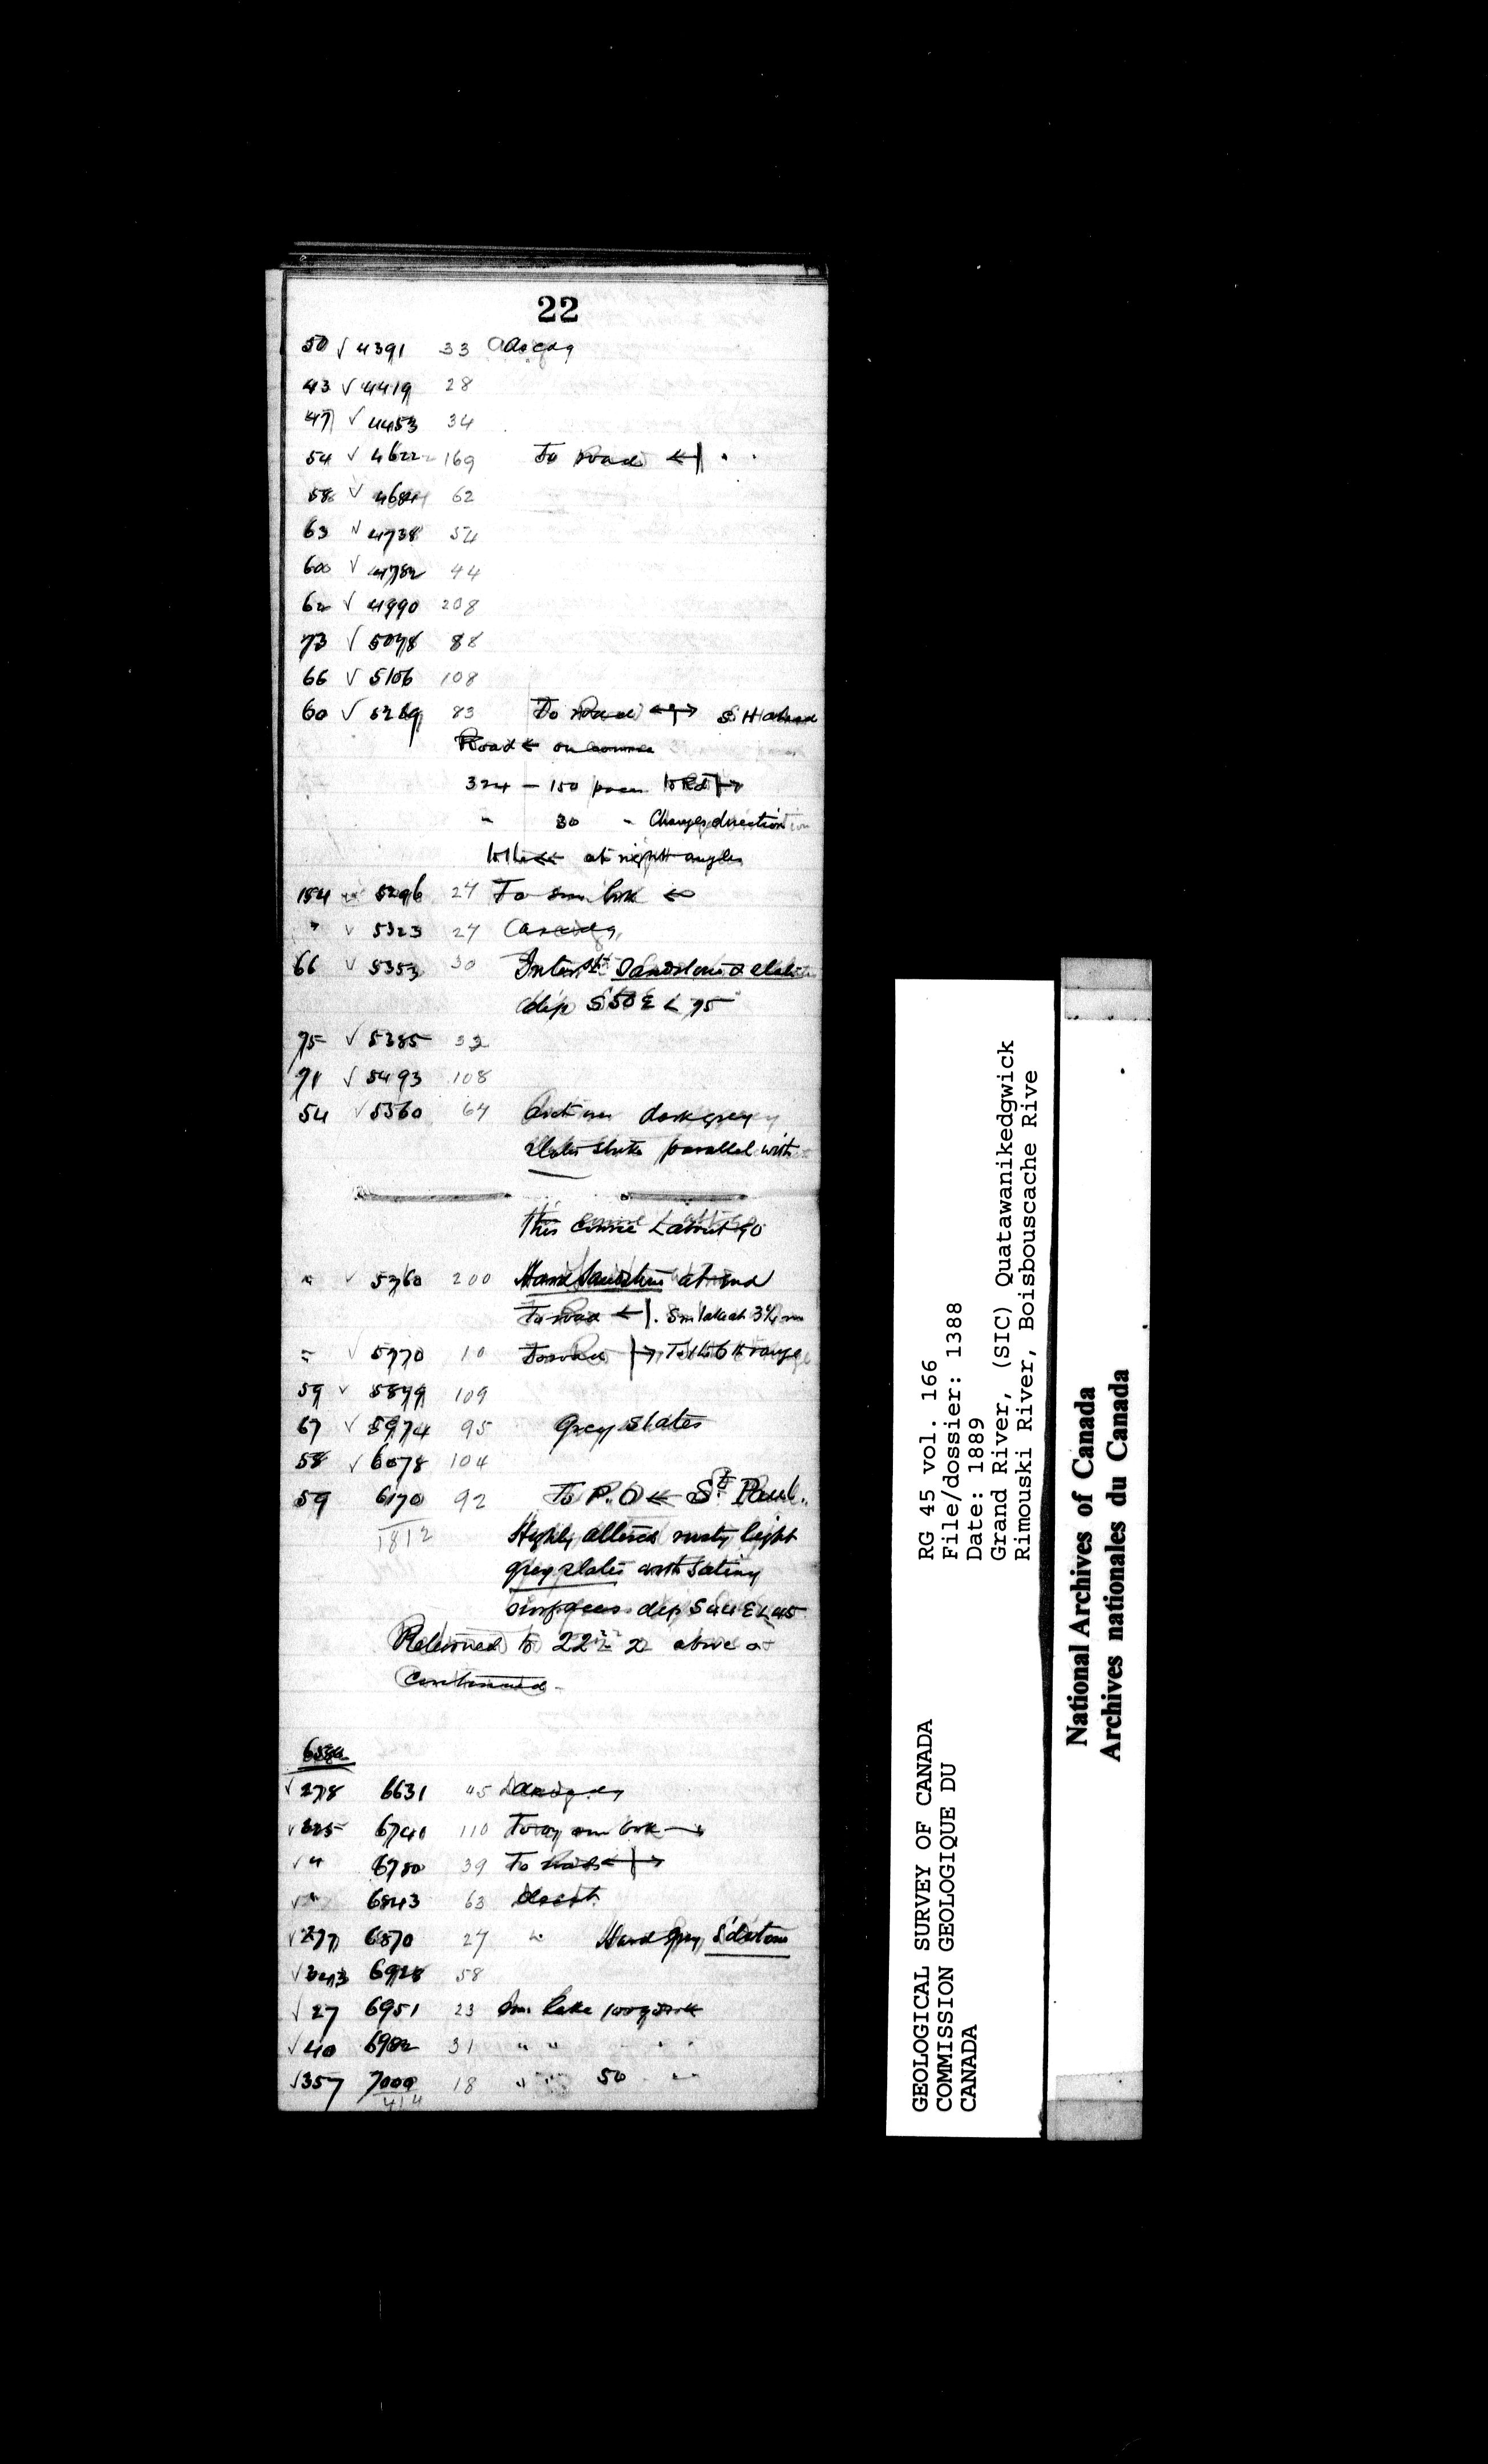 22
50 √ 4391 33
43 √ 4419 28
47 √ 4453 34
54 √ 4622 169 To Road ←|
58 √ 4684 62
63 √ 4738 54
60 √ 4782 44
62 √ 4990 208
73 √ 5078 88
66 √ 5106 108
60 √ 5289 83 To Road
Road ← on course
324 — 150 paces to Rd |→
" 30 " Changes direction
to the ← at right angles
154 5296 24 To sm brk
" √ 5323 27 Cascdg
66 √ 5353 30 Sandstone & slates
dip S 50 E < 75°
75 √ 5385 32
71 √ 5493 108
54 √ 5560 64 dark grey
slates strike parallel with
this course < about 90
" √ 5760 200 Hard Sandstone at end
To Road ← |. Sm lake at 3/4 m
" √ 5770 10 To road |→ To the 6th range
59 √ 5879 109
67 √ 5974 95 Grey slates
58 √ 6078 104
59 6170 92 To P.O ← St Paul.
1812 Highly altered rusty light
grey slates with satiny
surfaces dip S 44 E < 45
Returned to 22 above &
Continued -
6586
√ 278 6631 45
√ 325 6740 110 brk →
√ " 6780 39 To Road ←|→
√ " 6843 63
√ 277 6870 27 " Hard grey
√ 343 6928 58
√ 27 6951 23 Sm. Lake 100
√ 40 6982 31 " "
√ 357 7000 18 " " 50
414
GEOLOGICAL SURVEY OF CANADA
COMMISSION GEOLOGIQUE DU
CANADA
RG 45 vol. 166
File/dossier: 1388
Date: 1889
Grand River, (SIC) Quatawanikedgwick
Rimouski River, Boisbouscache Rive
National Archives of Canada
Archives nationales du Canada